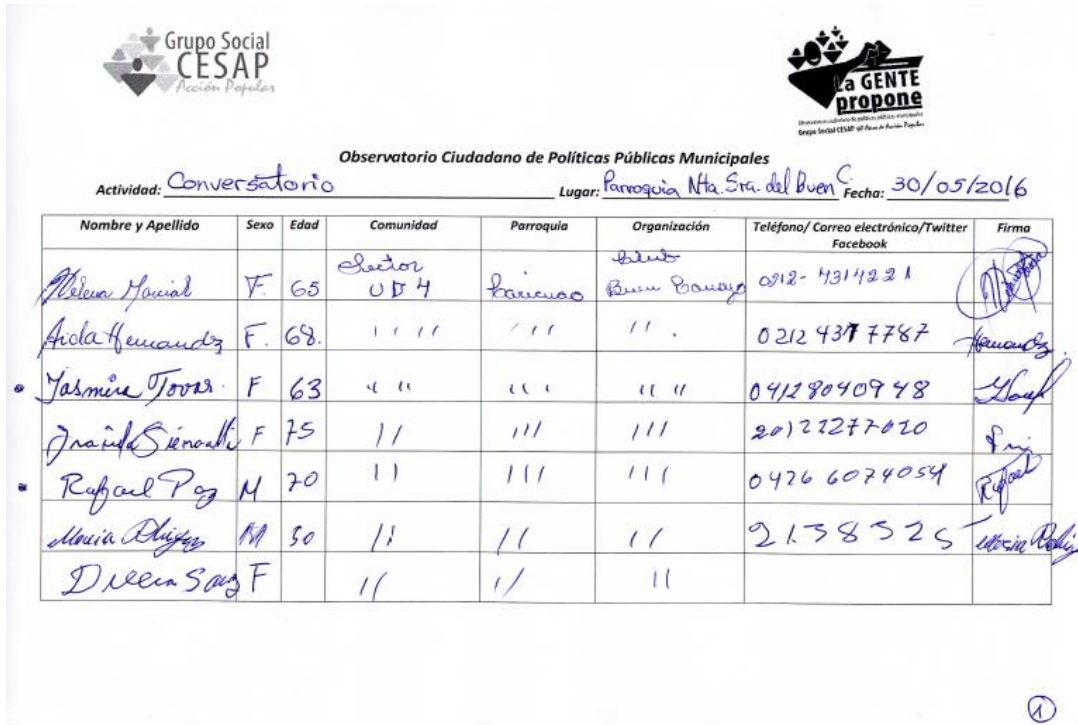 Grupo Social
CESAP
Acción Popular
La GENTE
propone
Observatorio Ciudadano de Políticas Públicas Municipales
Actividad: Conversatorio Lugar: Parroquia Ntra. Sra. del Buen C. Fecha: 30/05/2016
Nombre y Apellido Sexo Edad Comunidad Parroquia Organización Teléfono/ Correo electrónico/Twitter Facebook Firma
Marcial F. 65 Sector UD4 Caricuao Club Buen Consejo 0212-4314221
Aida Hernandez F. 68. " " " " " " . 0212 4377787 Hernandez.
Yasmira Tovar. F 63 " " " " " " 04128040948
F 75 " " " 20122277020
Rafael Paz M 70 " " " 0426 6074054 Rafael
Maria M 30 " " " 2138325 Maria
F " " "
1